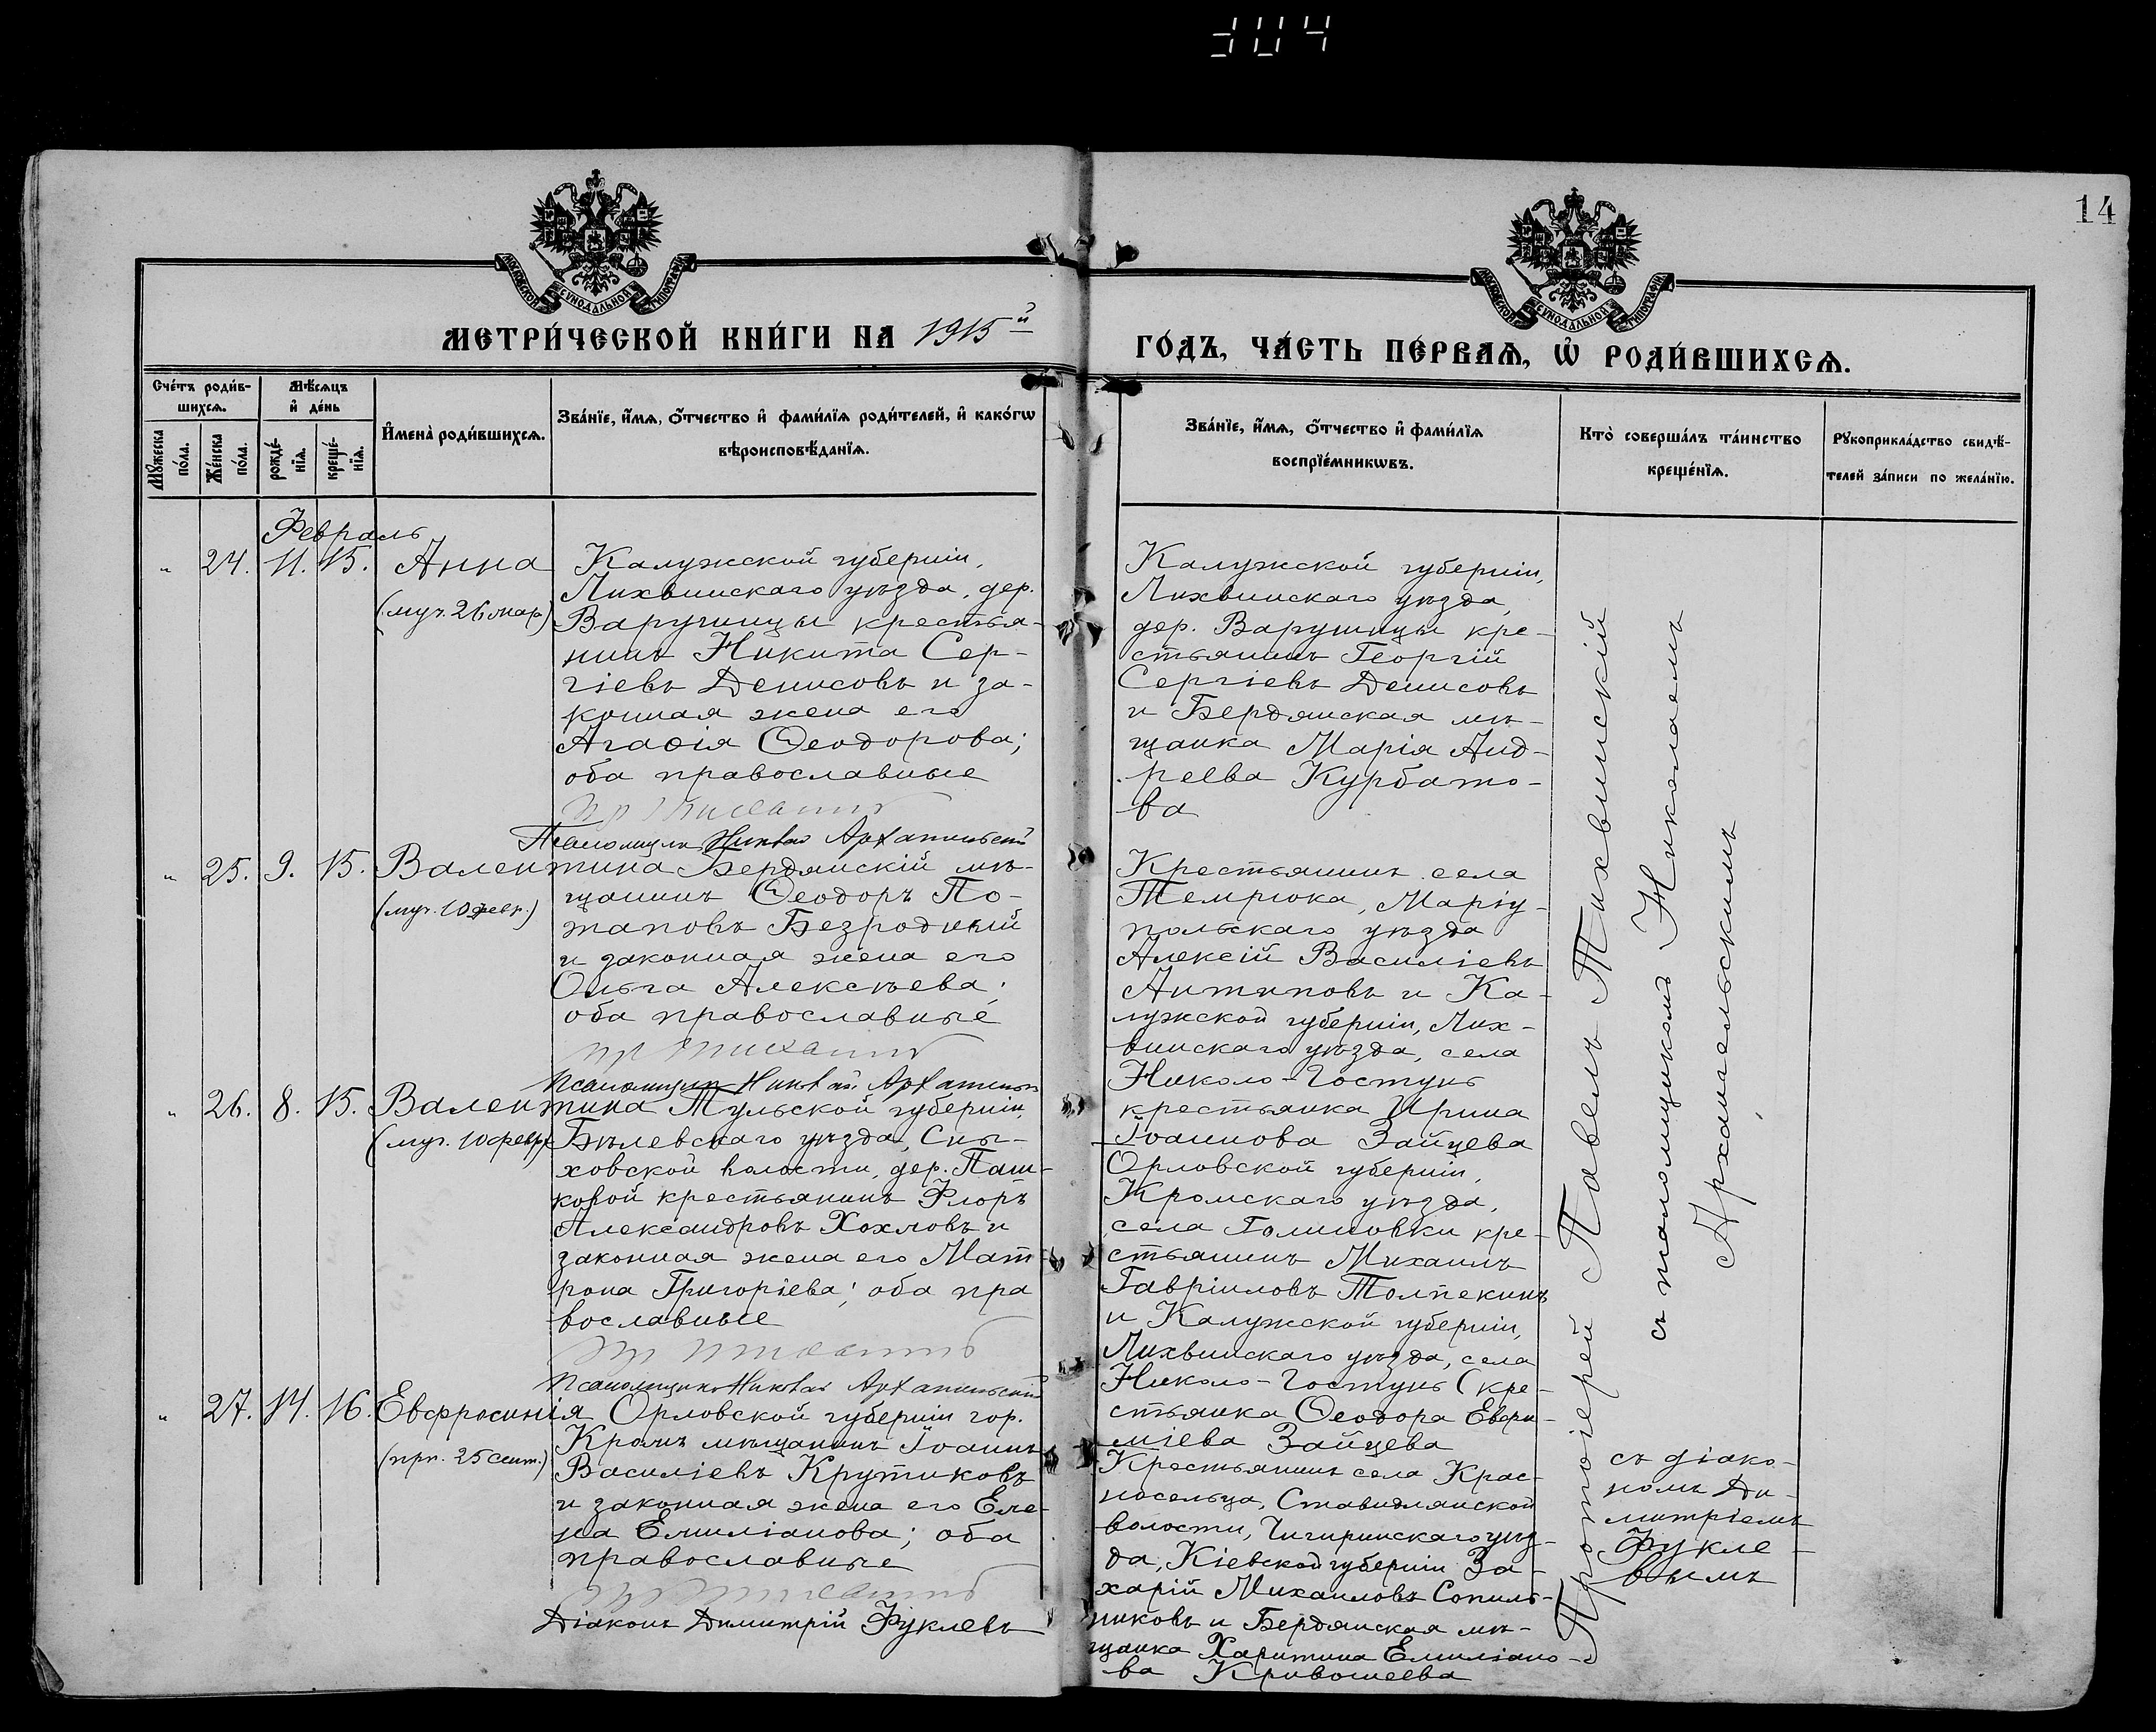 304
14
МОСКОВСКОЙ СѴНОДАЛЬНОЙ ТИПОГРАФІИ
МОСКОВСКОЙ СѴНОДАЛЬНОЙ ТИПОГРАФІИ
МЕТРИ́ЧЕСКОЙ КНИ́ГИ НА 1915й
ГО́ДЪ, ЧА́СТЬ ПЕ́РВАѦ, Ѡ҆ РОДИ́ВШИХСѦ.
Сче́тъ роди́в-
шихсѧ.
Мѣ́сѧцъ
и҆ де́нь
Мꙋ́жеска
по́ла.
Же́нска
по́ла.
рожде́-
нїѧ.
креще́-
нїѧ.
И҆мена̀ роди́вшихсѧ.
Зва́нїе, и҆́мѧ, ѻ҆́тчество и҆ фами́лїѧ роди́телей, и҆ како́гѡ
вѣроисповѣ́данїѧ.
Зва́нїе, и҆́мѧ, ѻ҆́тчество и҆ фами́лїѧ
воспрїе́мникѡвъ.
Кто̀ соверша́лъ та́инство
креще́нїѧ.
Рꙋкоприкла́дство свидѣ́-
телей за́писи по жела́нїю.
Февраль
" 24. 11. 15. Анна
(муч. 26 мар.)
Калужской губерніи,
Лихвинскаго уѣзда, дер.
Варушицы крестья-
нинъ Никита Сер-
гіевъ Денисовъ и за-
конная жена его
Агаѳія Ѳеодорова;
оба православные
Псаломщикъ Николай Архангельскій
Калужской губерніи,
Лихвинскаго уѣзда,
дер. Варушицы кре-
стьянинъ Георгій
Сергіевъ Денисовъ
и Бердянская мѣ-
щанка Марія Анд-
реева Курбато-
ва
" 25. 9. 15. Валентина
(муч. 10 февр.)
Бердянскій мѣ-
щанинъ Ѳеодоръ По-
таповъ Безродный
и законная жена его
Ольга Алексѣева;
оба православные
Псаломщикъ Николай Архангельскій
Крестьянинъ села
Темрюка, Маріу-
польскаго уѣзда
Алексій Василіевъ
Антиповъ и Ка-
лужской губерніи, Лих-
винскаго уѣзда, села
Николо-Гостунь
крестьянка Ирина
Іоаннова Зайцева
" 26. 8. 15. Валентина
(муч. 10 февр.)
Тульской губерніи
Бѣлевскаго уѣзда, Сны-
ховской волости, дер. Паш-
ковой крестьянинъ Флоръ
Александровъ Хохловъ и
законная жена его Мат-
рона Григоріева; оба пра
вославные
Псаломщикъ Николай Архангельскій
Орловской губерніи,
Кромскаго уѣзда,
села Голиновки кре-
стьянинъ Михаилъ
Гавріиловъ Толпекинъ
и Калужской губерніи,
Лихвинскаго уѣзда, села
Николо-Гостунь (кре-
стьянка Ѳеодора Евфи-
міева Зайцева
" 27. 14. 16. Евфросинія
(прп. 25 сент.)
Орловской губерніи гор.
Кромъ мѣщанинъ Іоаннъ
Василіевъ Крутиковъ
и законная жена его Еле-
на Емиліанова; оба
православные
Діаконъ Димитрій Фуклевъ
Крестьянинъ села Крас-
носелья, Ставидлянской
волости, Чигиринскаго уѣз-
да, Кіевской губерніи За-
харій Михаиловъ Сопиль-
никовъ и Бердянская мѣ-
щанка Харитина Емиліано-
ва Кривошеева
Протоіерей Павелъ Тихвинскій
съ псаломщикомъ Николаемъ
Архангельскимъ
съ діако-
номъ Ди-
митріемъ
Фукле-
вымъ